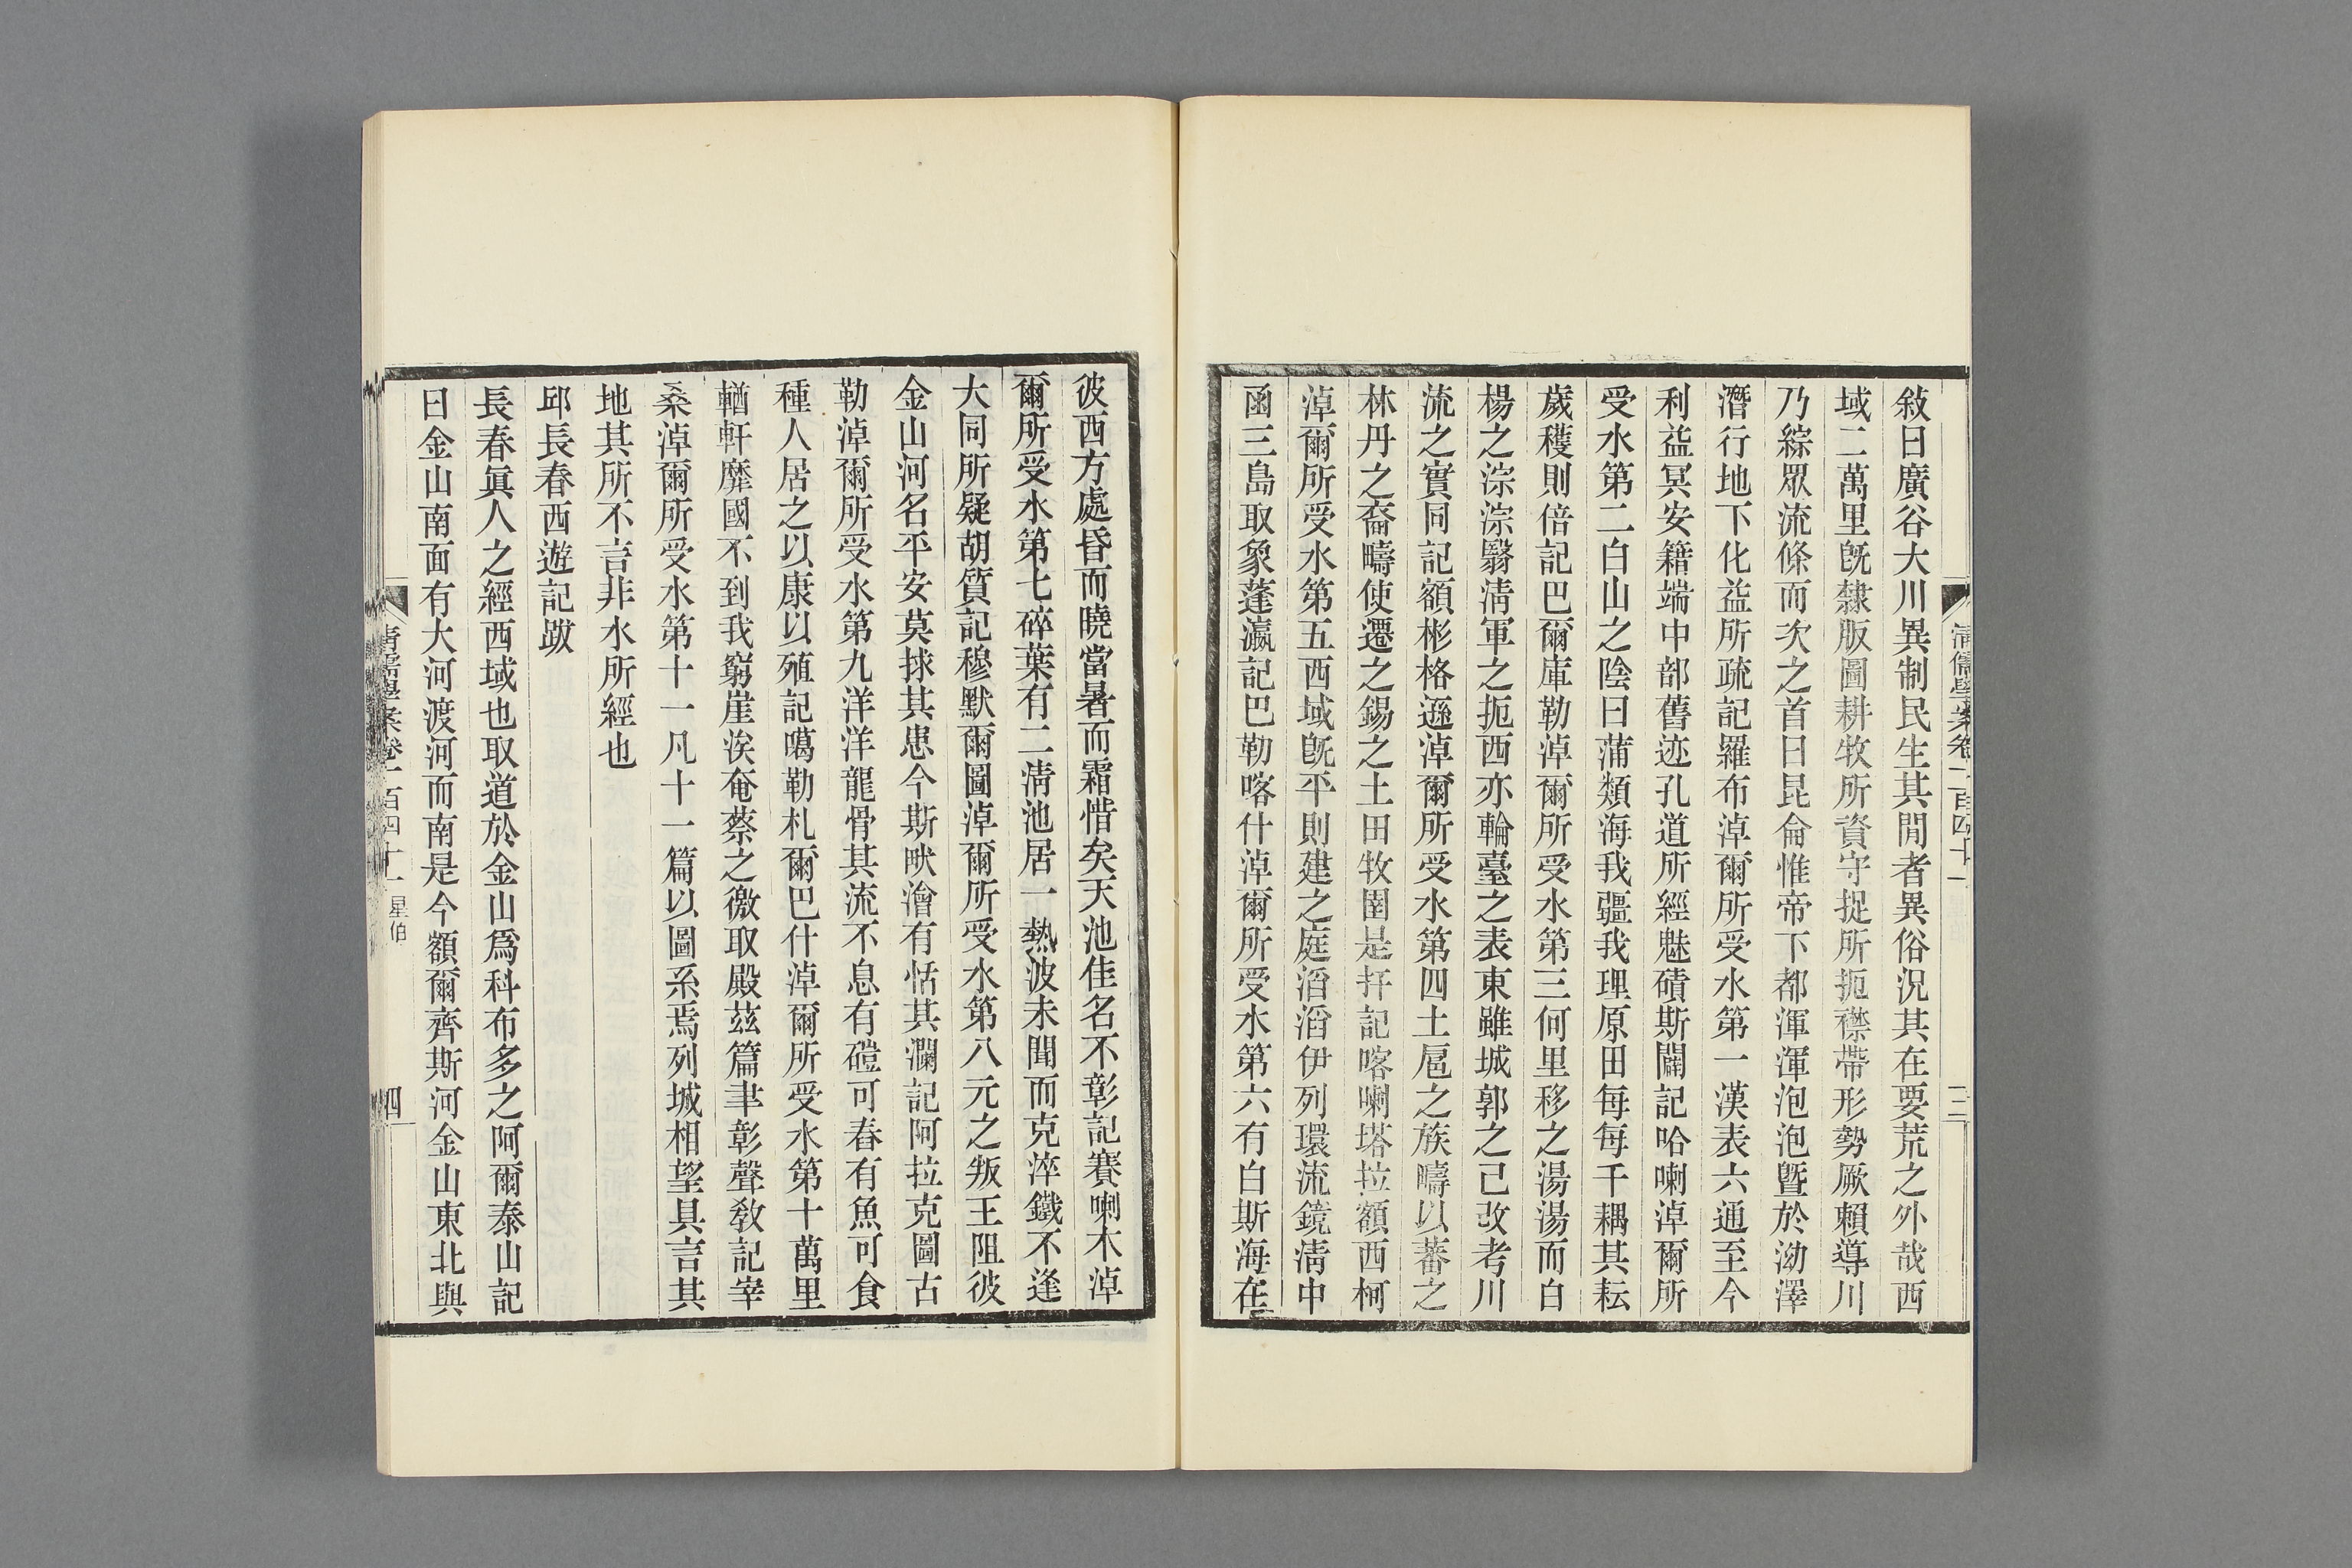 清儒學案卷一百四十一
三
敍曰廣谷大川異制民生其閒者異俗況其在要荒之外哉西
域二萬里旣隸版圖耕牧所資守捉所扼襟帶形勢厥賴導川
乃綜眾流條而次之首曰昆侖惟帝下都渾渾泡泡曁於泑澤
潛行地下化益所疏記羅布淖爾所受水第一漢表六通至今
利益冥安籍端中部舊迹孔道所經魅磧斯闢記哈喇淖爾所
受水第二白山之陰曰蒲類海我疆我理原田每每千耦其耘
歲穫則倍記巴爾庫勒淖爾所受水第三何里移之湯湯而白
楊之淙淙翳淸軍之扼西亦輪臺之表東雖城郭之已改考川
流之實同記額彬格遜淖爾所受水第四土扈之族疇以蕃之
林丹之裔疇使遷之錫之土田牧圉是扞記喀喇塔拉額西柯
淖爾所受水第五西域旣平則建之庭滔滔伊列環流鏡淸中
函三島取象蓬瀛記巴勒喀什淖爾所受水第六有白斯海在
彼西方處昏而曉當暑而霜惜矣天池佳名不彰記賽喇木淖
爾所受水第七碎葉有二淸池居一熱波未聞而克淬鐵不逢
大同所疑胡質記穆默爾圖淖爾所受水第八元之叛王阻彼
金山河名平安莫捄其患今斯畎澮有恬其瀾記阿拉克圖古
勒淖爾所受水第九洋洋龍骨其流不息有磑可舂有魚可食
種人居之以康以殖記噶勒札爾巴什淖爾所受水第十萬里
輶軒靡國不到我窮崖涘奄蔡之徼取殿茲篇聿彰聲敎記宰
桑淖爾所受水第十一凡十一篇以圖系焉列城相望具言其
地其所不言非水所經也
邱長春西遊記跋
長春眞人之經西域也取道於金山爲科布多之阿爾泰山記
曰金山南面有大河渡河而南是今額爾齊斯河金山東北與
清儒學案卷一百四十一 星伯
四